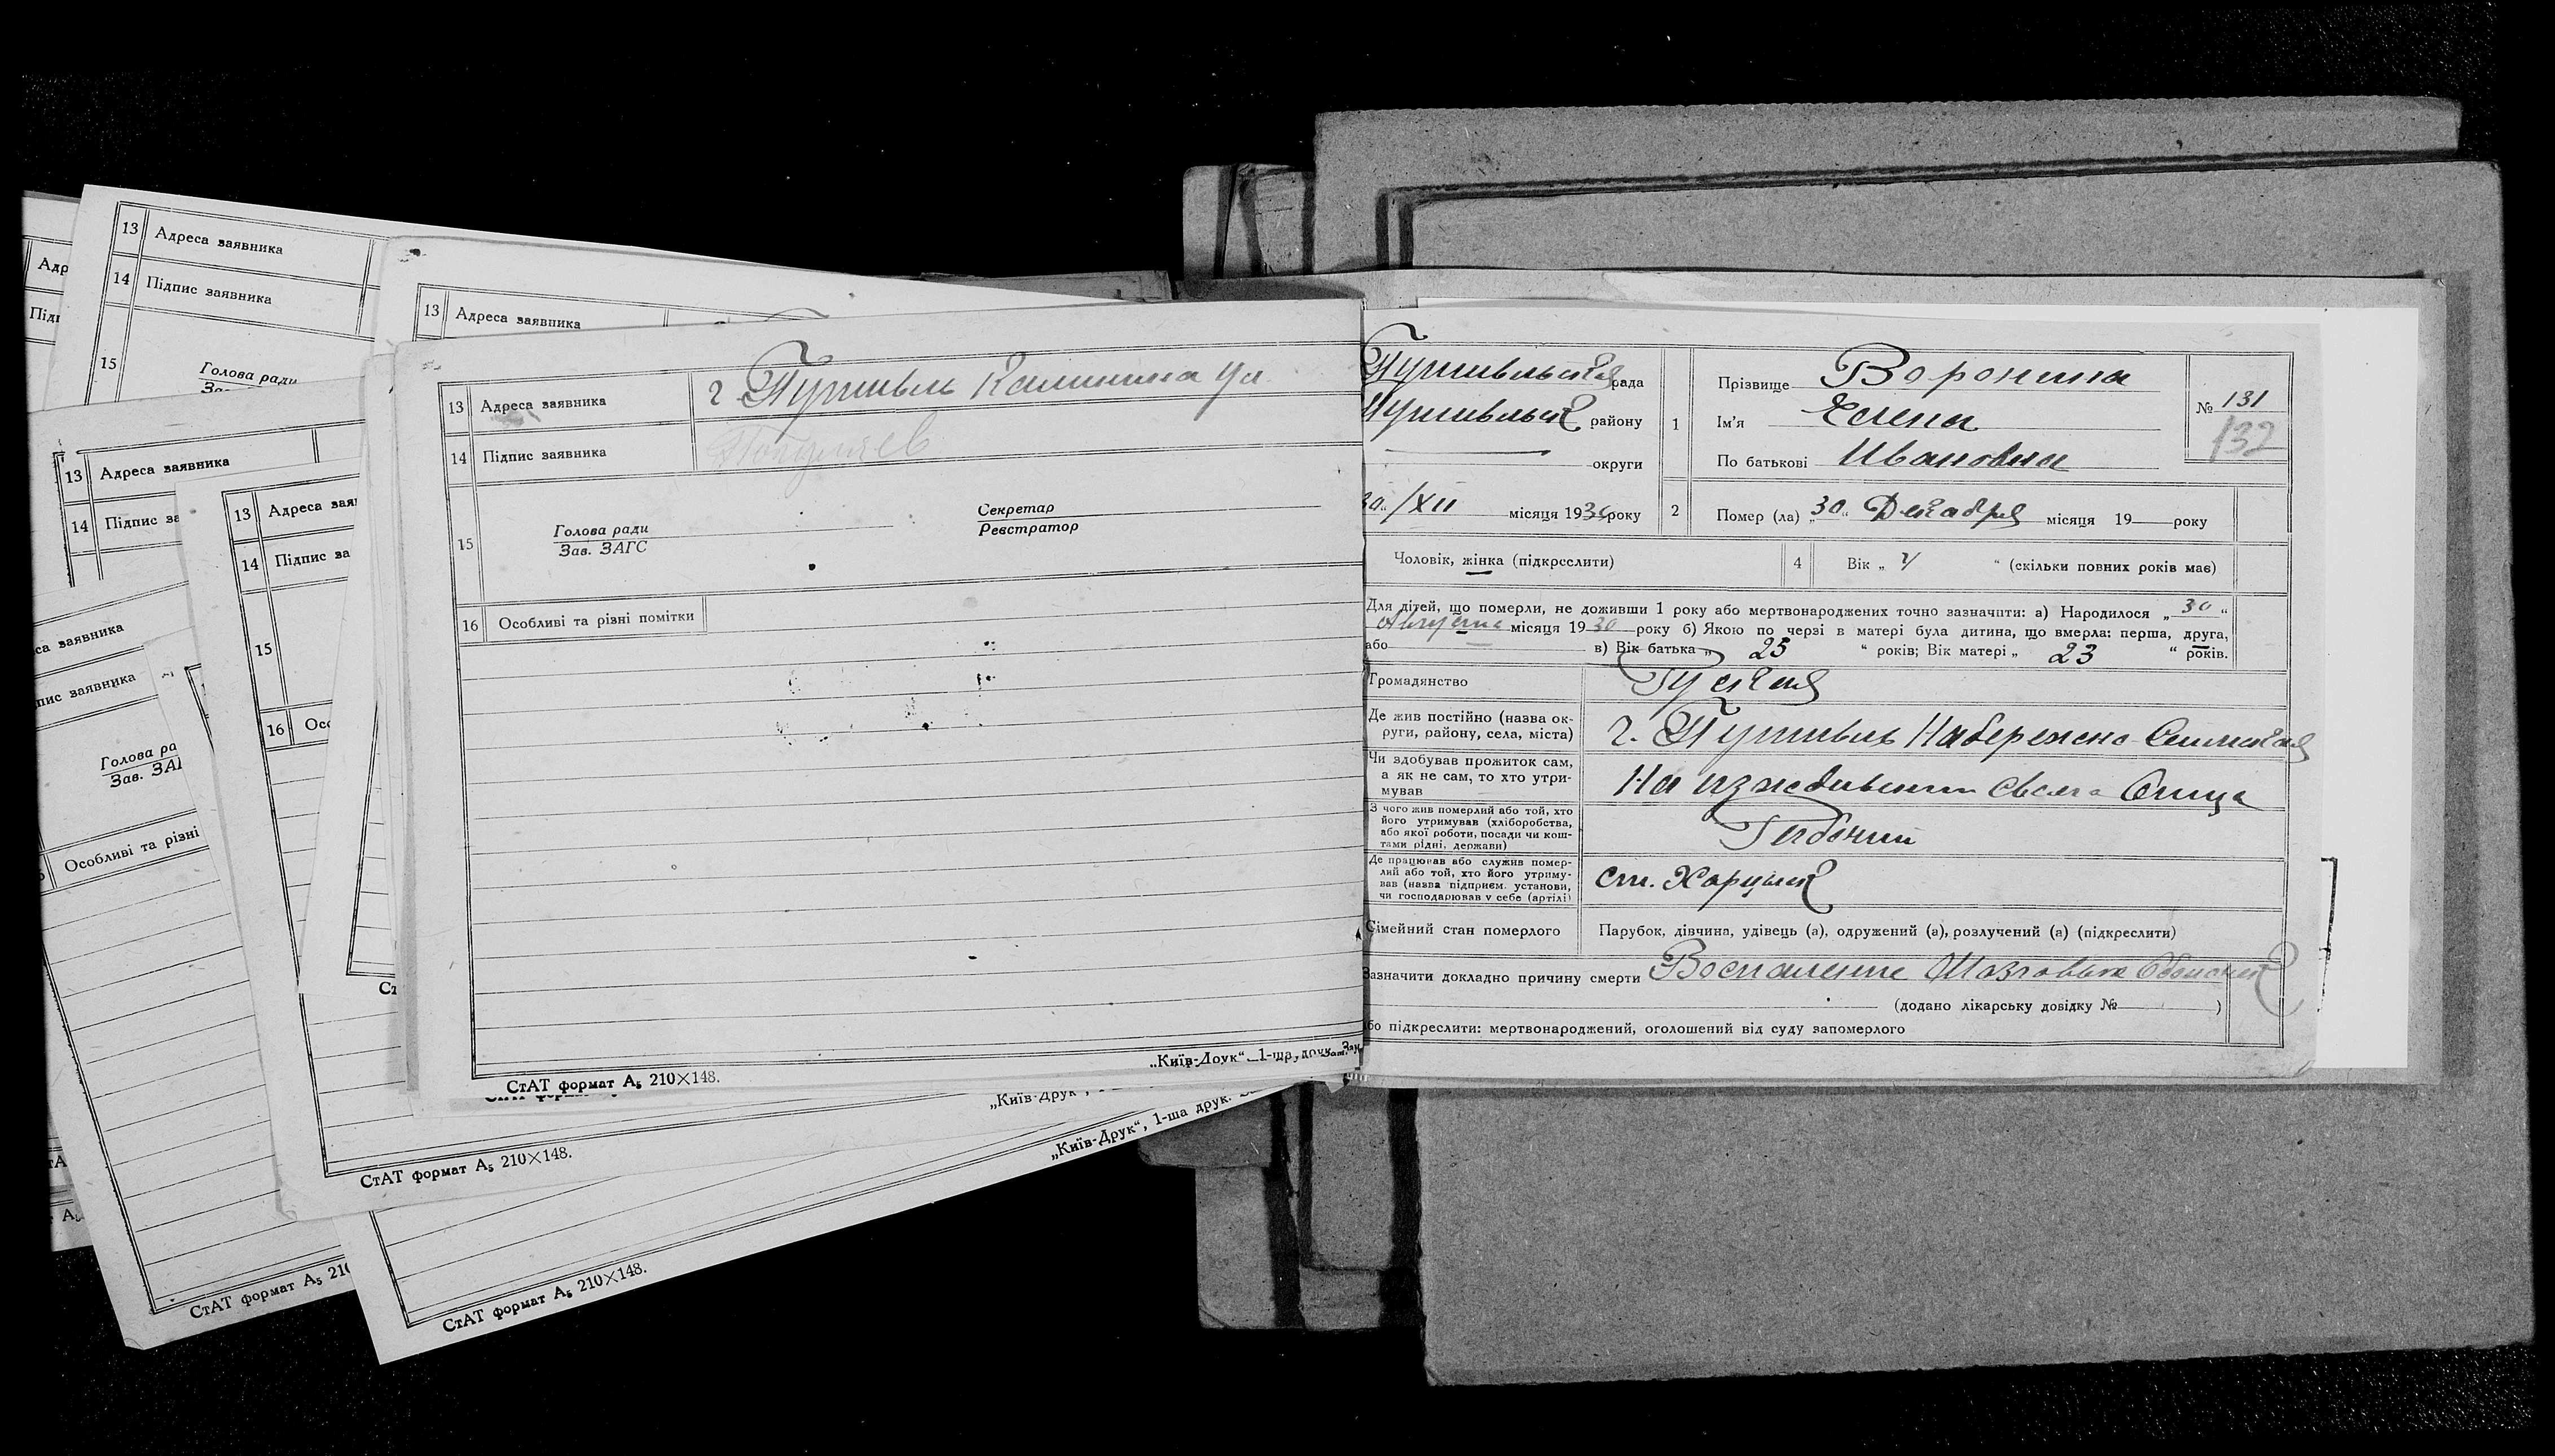 Адр
Підп
13 Адреса заявника
14 Підпис заявника
15
Голова ради
13 Адреса заявника
13 Адреса заявника
14 Підпис за
13 Адреса зая
14 Підпис за
15
16 Осо
са заявника
пис заявника
Голова ра
Зав. ЗАГ
Особливі та різні
13 Адреса заявника г. Путивль Калинина ул
14 Підпис заявника
15 Голова ради
Зав. ЗАГС
Секретар
Реєстратор
16 Особливі та різні помітки
СтАТ формат А5 210×148.
„Київ-Друк“, 1-ша друк. Зам.
„Київ-Друк“,
СтАТ формат А5 210×148.
„Київ-Друк“, 1-ша друк.
СтАТ формат А5 210
СтАТ формат А5 210×148.
Путивльская рада
Путивльск району
округи
30/XII місяця 1930 року
1 Прізвище Воронина
Ім'я Елена
По батькові Ивановна
№ 131
132
2 Помер (ла) „30“ Декабря місяця 19 року
Чоловік, жінка (підкреслити)
4 Вік „ “ (скільки повних років має)
Для дітей, що померли, не доживши 1 року або мертвонароджених точно зазначити: а) Народилося „30“
Августа місяця 1930 року б) Якою по черзі в матері була дитина, що вмерла: перша, друга,
або в) Вік батька „ 25 “ років; Вік матері „ 23 “ років.
Громадянство Руская
Де жив постійно (назва ок-
руги, району, села, міста)
г. Путивль Набережно-Сеимская
Чи здобував прожиток сам,
а як не сам, то хто утри-
мував
На иждивении своего Отца
З чого жив померлий або той, хто
його утримував (хліборобства,
або якої роботи, посади чи кош-
тами рідні, держави)
Рабочий
Де працював або служив помер-
лий або той, хто його утриму-
вав (назва підприєм. установи,
чи господарював у себе (артілі)
ст. Харцызк
Сімейний стан померлого Парубок, дівчина, удівець (а), одружений (а), розлучений (а) (підкреслити)
Зазначити докладно причину смерти Воспаление Мозговых Оболочек
(додано лікарську довідку № )
або підкреслити: мертвонароджений, оголошений від суду запомерлого